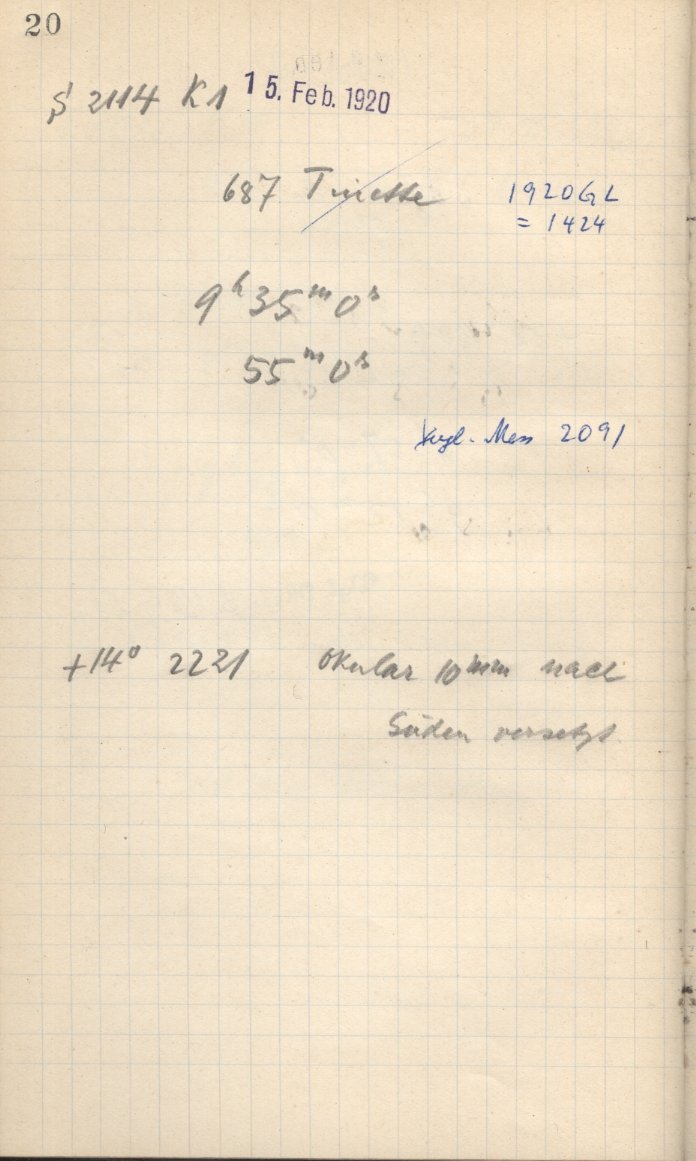 20
2114 K1 15. Feb. 1920
687 Tinette 1920GL
= 1424
9h 35m 0s
55m 0s
Mess 2091
+14° 2221 Okular 10mm nach
Süden versetzt